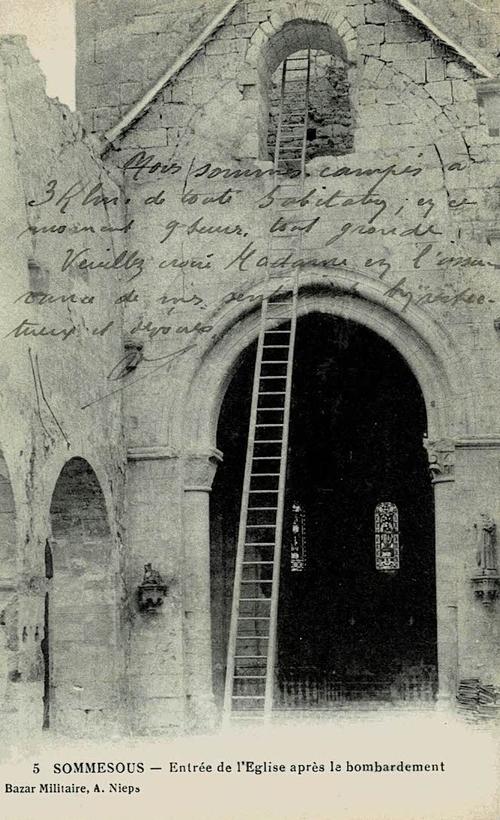 Nous sommes campés à
3 Klm. de toute habitation, en ce
moment 9 heures, tout gronde.
Veuillez croire Madame en l'assu-
rance de mes sentiments respec-
tueux et dévoués
5 SOMMESOUS — Entrée de l'Eglise après le bombardement
Bazar Militaire, A. Nieps